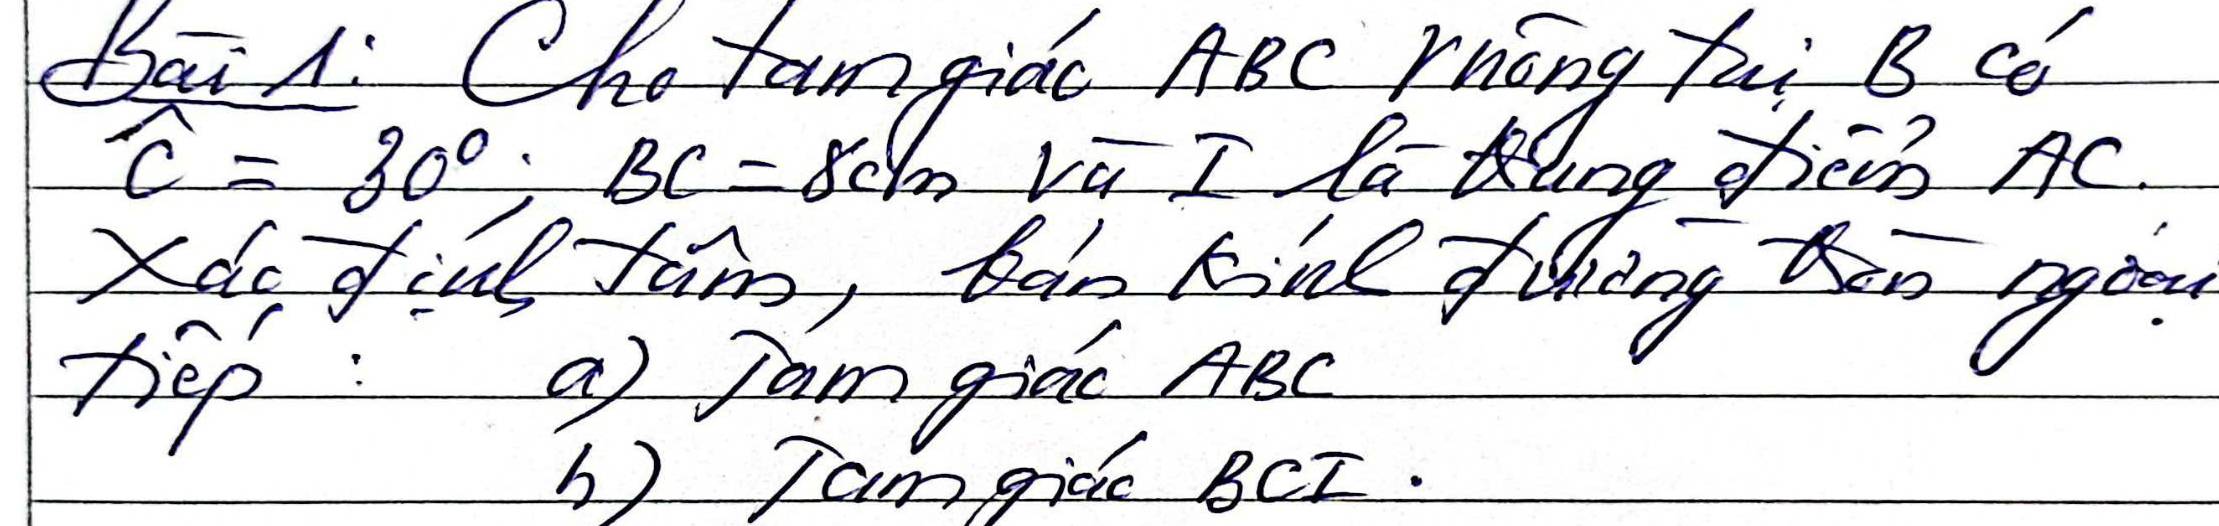 Bài 1: Cho tam giác ABC vuông tại B có
Ĉ = 30°; BC = 8cm và I là trung điểm AC.
Xác định tâm, bán kính đường tròn ngoại
tiếp : a) Tam giác ABC
b) Tam giác BCI.